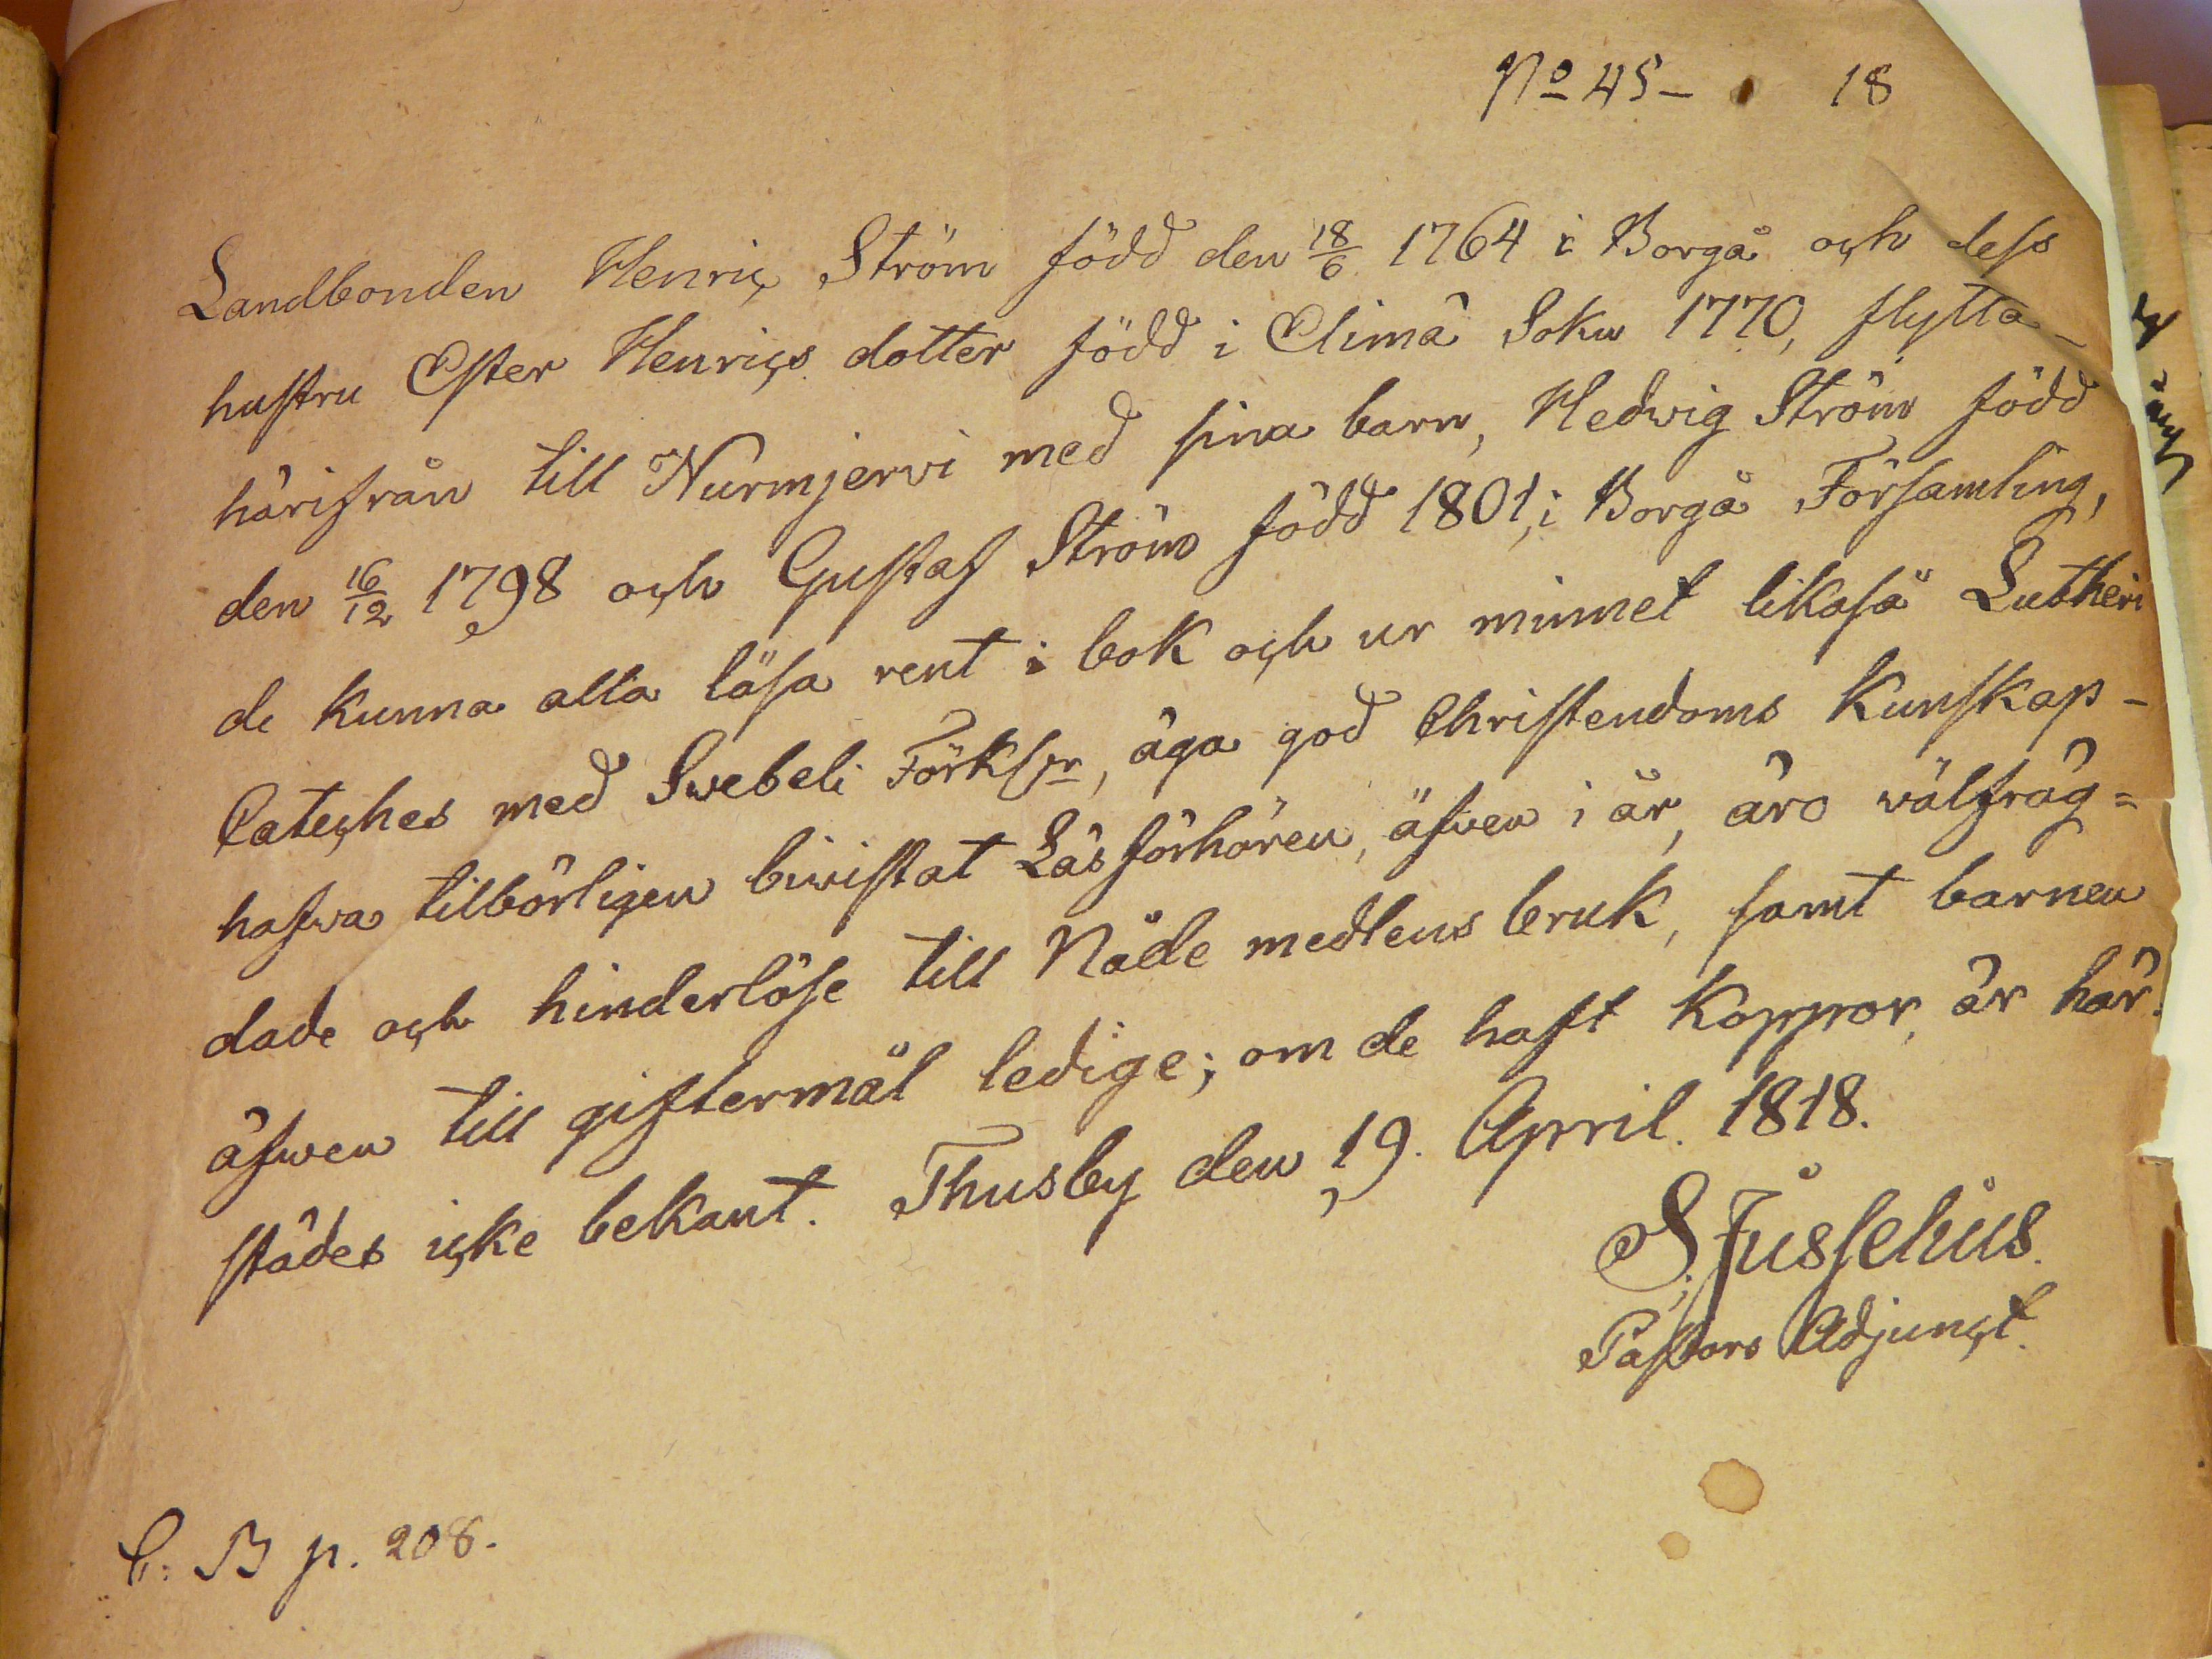 No 45- 18
Landbonden Henric Ström född den 18/6 1764 i Borgå och dess
hustru Ester Henrics dotter född i Elimä Sokn 1770, flytta-
härifrån till Nurmjervi med sina barn, Hedvig Ström född
den 16/12 1798 och Gustaf Ström född 1801, i Borgå Församling,
de kunna alla läsa rent i bok och ur minnet likaså Lutheri
Cateches med Svebeli Förklgn, äga god Christendoms Kunskap-
hafva tilbörligen bivistat Läsförhören, äfven i år, äro välfräg=
dade och hinderlöse till Nådemedlens bruk, samt barnen
äfven till giftermål ledige; om de haft Koppor, är här
städes icke bekant. Thusby den 19. April. 1818.
S. Jusselius.
Pastors Adjunct.
C: B p. 208.